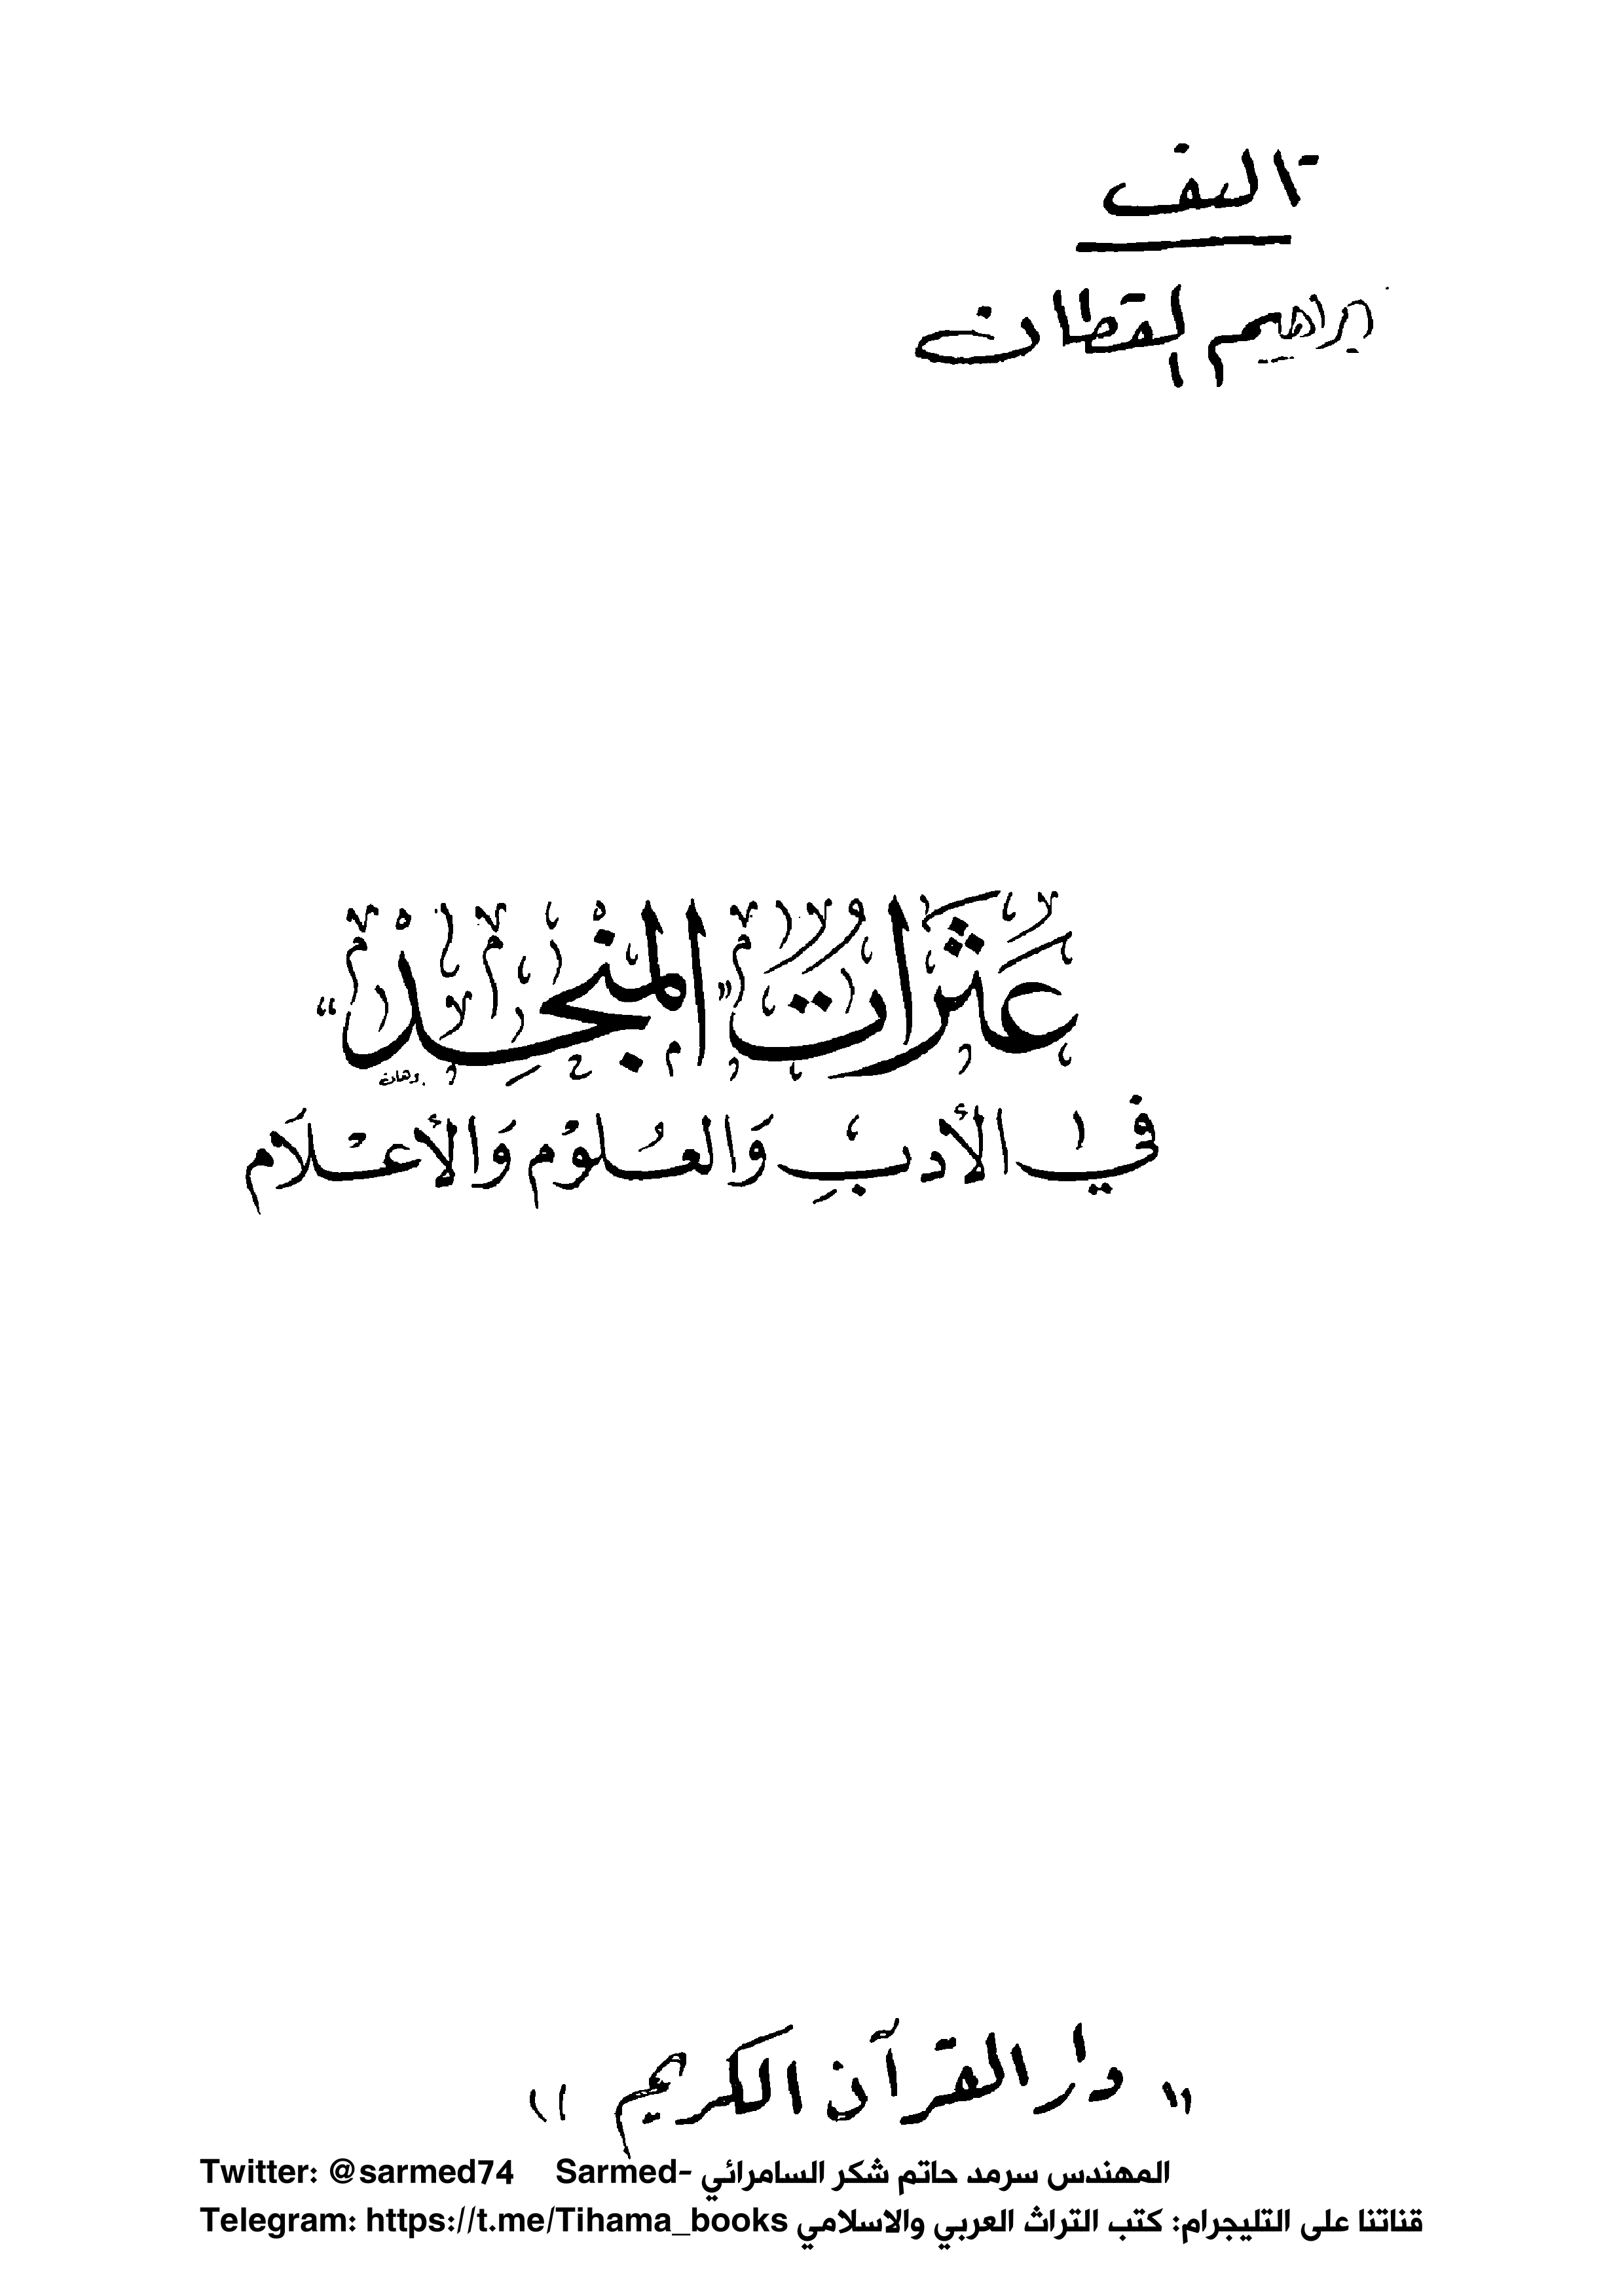 تاليف
ابراهيم القطان
عَثَرَاتُ "المنْجِدْ"
في الأدبِ وَالعُلوْم وَالأعْلَام
"دار القرآن الكريم"
Twitter: @sarmed74 Sarmed- المهندس سرمد حاتم شكر السامرائي
Telegram: https://t.me/Tihama_books قناتنا على التليجرام: كتب التراث العربي والاسلامي